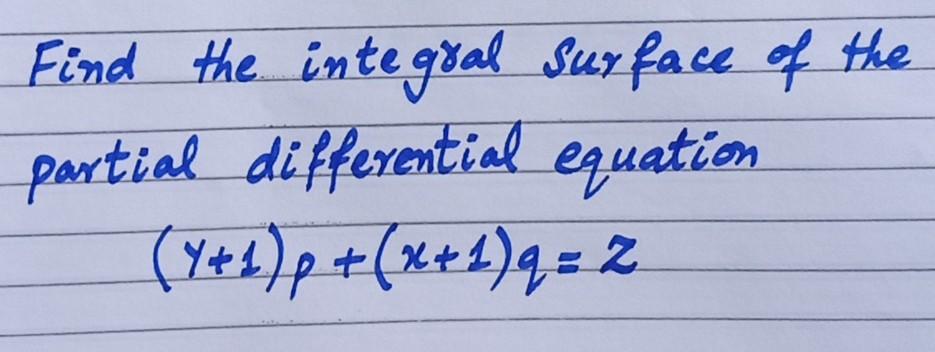 Find the integral surface of the
partial differential equation
(y+1)p+(x+1)q=z